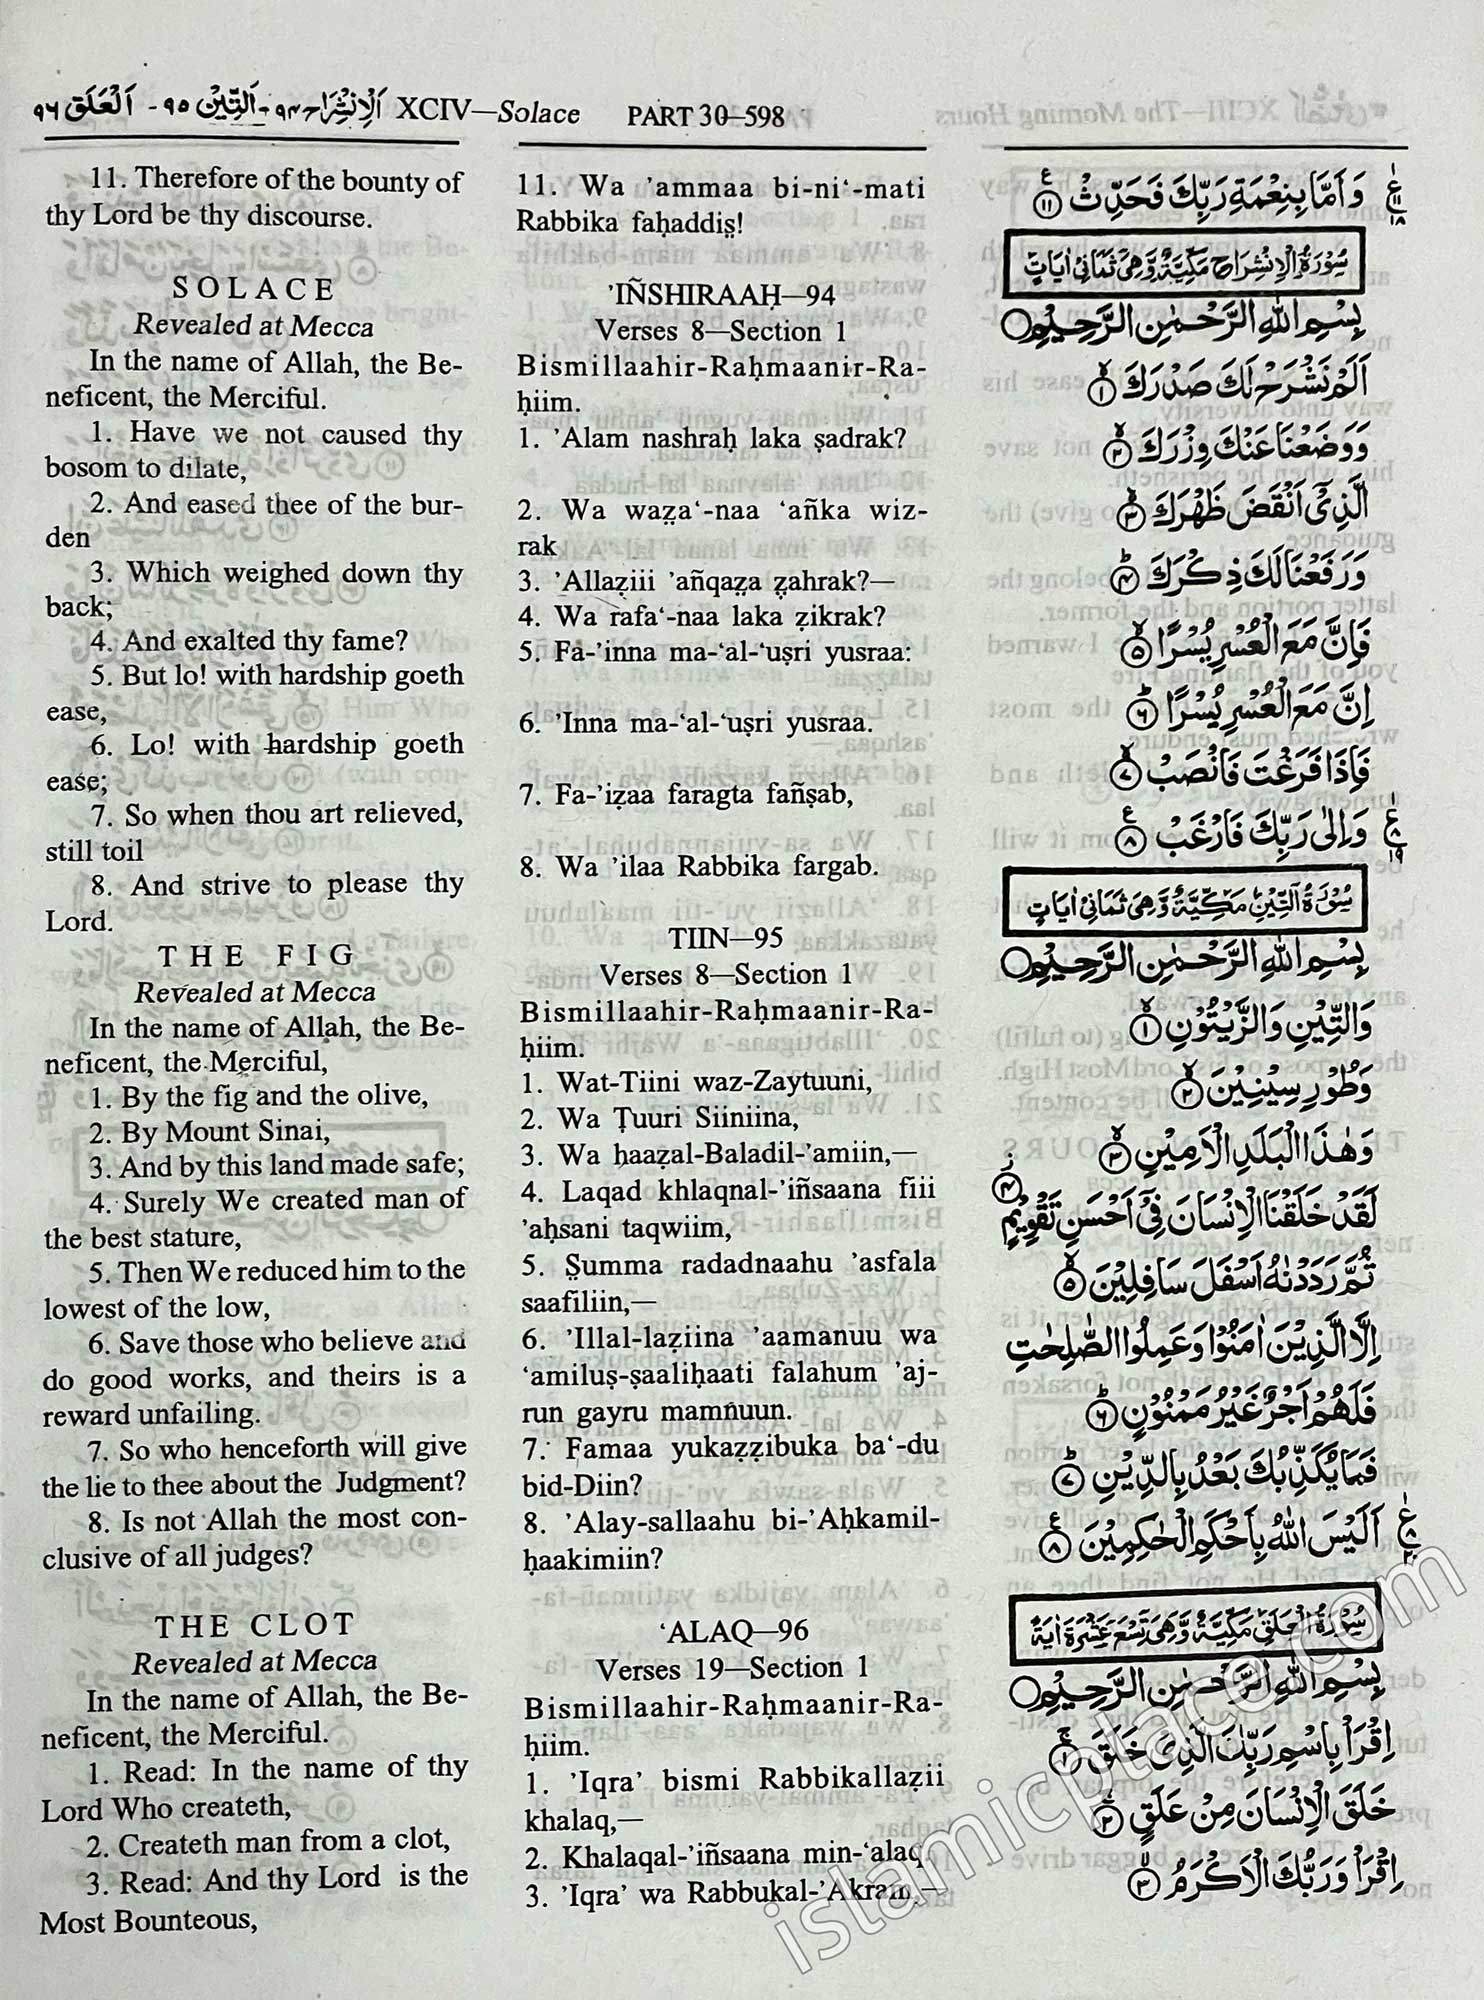 اَلْاِنْشِرَاح ٩٤ - اَلتِّيْن ٩٥ - اَلْعَلَق ٩٦ XCIV—Solace PART 30–598
11. Therefore of the bounty of
thy Lord be thy discourse.
SOLACE
Revealed at Mecca
In the name of Allah, the Be-
neficent, the Merciful.
1. Have we not caused thy
bosom to dilate,
2. And eased thee of the bur-
den
3. Which weighed down thy
back;
4. And exalted thy fame?
5. But lo! with hardship goeth
ease,
6. Lo! with hardship goeth
ease;
7. So when thou art relieved,
still toil
8. And strive to please thy
Lord.
THE FIG
Revealed at Mecca
In the name of Allah, the Be-
neficent, the Merciful,
1. By the fig and the olive,
2. By Mount Sinai,
3. And by this land made safe;
4. Surely We created man of
the best stature,
5. Then We reduced him to the
lowest of the low,
6. Save those who believe and
do good works, and theirs is a
reward unfailing.
7. So who henceforth will give
the lie to thee about the Judgment?
8. Is not Allah the most con-
clusive of all judges?
THE CLOT
Revealed at Mecca
In the name of Allah, the Be-
neficent, the Merciful.
1. Read: In the name of thy
Lord Who createth,
2. Createth man from a clot,
3. Read: And thy Lord is the
Most Bounteous,
11. Wa 'ammaa bi-ni‘-mati
Rabbika faḥaddis̤!
'IÑSHIRAAḤ—94
Verses 8—Section 1
Bismillaahir-Raḥmaanir-Ra-
ḥiim.
1. 'Alam nashraḥ laka ṣadrak?
2. Wa waẓa‘-naa ‘añka wiz-
rak
3. 'Allaẓiii 'añqaẓa ẓahrak?—
4. Wa rafa‘-naa laka ẓikrak?
5. Fa-'inna ma-‘al-‘uṣri yusraa:
6. 'Inna ma-‘al-‘uṣri yusraa.
7. Fa-'iẓaa faragta fañṣab,
8. Wa 'ilaa Rabbika fargab.
TIIN—95
Verses 8—Section 1
Bismillaahir-Raḥmaanir-Ra-
ḥiim.
1. Wat-Tiini waz-Zaytuuni,
2. Wa Ṭuuri Siiniina,
3. Wa haaẓal-Baladil-'amiin,—
4. Laqad khlaqnal-'iñsaana fiii
'aḥsani taqwiim,
5. S̤umma radadnaahu 'asfala
saafiliin,—
6. 'Illal-laẓiina 'aamanuu wa
‘amiluṣ-ṣaaliḥaati falahum 'aj-
run gayru mamnuun.
7. Famaa yukaẓẓibuka ba‘-du
bid-Diin?
8. 'Alay-sallaahu bi-'Aḥkamil-
ḥaakimiin?
‘ALAQ—96
Verses 19—Section 1
Bismillaahir-Raḥmaanir-Ra-
ḥiim.
1. 'Iqra' bismi Rabbikallaẓii
khalaq,—
2. Khalaqal-'iñsaana min-‘alaq
3. 'Iqra' wa Rabbukal-'Akram,—
وَاَمَّا بِنِعْمَةِ رَبِّكَ فَحَدِّثْ ۝١١
سُوْرَةُ الْاِنْشِرَاحِ مَكِّيَّةٌ وَّهِيَ ثَمَانِيْ اٰيَاتٍ
بِسْمِ اللّٰهِ الرَّحْمٰنِ الرَّحِيْمِ ۝
اَلَمْ نَشْرَحْ لَكَ صَدْرَكَ ۝١
وَوَضَعْنَا عَنْكَ وِزْرَكَ ۝٢
الَّذِيْٓ اَنْقَضَ ظَهْرَكَ ۝٣
وَرَفَعْنَا لَكَ ذِكْرَكَ ۝٤
فَاِنَّ مَعَ الْعُسْرِ يُسْرًا ۝٥
اِنَّ مَعَ الْعُسْرِ يُسْرًا ۝٦
فَاِذَا فَرَغْتَ فَانْصَبْ ۝٧
وَاِلٰى رَبِّكَ فَارْغَبْ ۝٨
سُوْرَةُ التِّيْنِ مَكِّيَّةٌ وَّهِيَ ثَمَانِيْ اٰيَاتٍ
بِسْمِ اللّٰهِ الرَّحْمٰنِ الرَّحِيْمِ ۝
وَالتِّيْنِ وَالزَّيْتُوْنِ ۝١
وَطُوْرِ سِيْنِيْنَ ۝٢
وَهٰذَا الْبَلَدِ الْاَمِيْنِ ۝٣
لَقَدْ خَلَقْنَا الْاِنْسَانَ فِيْٓ اَحْسَنِ تَقْوِيْمٍ ۝٤
ثُمَّ رَدَدْنٰهُ اَسْفَلَ سَافِلِيْنَ ۝٥
اِلَّا الَّذِيْنَ اٰمَنُوْا وَعَمِلُوا الصّٰلِحٰتِ
فَلَهُمْ اَجْرٌ غَيْرُ مَمْنُوْنٍ ۝٦
فَمَا يُكَذِّبُكَ بَعْدُ بِالدِّيْنِ ۝٧
اَلَيْسَ اللّٰهُ بِاَحْكَمِ الْحٰكِمِيْنَ ۝٨
سُوْرَةُ الْعَلَقِ مَكِّيَّةٌ وَّهِيَ تِسْعَ عَشْرَةَ اٰيَةً
بِسْمِ اللّٰهِ الرَّحْمٰنِ الرَّحِيْمِ ۝
اِقْرَاْ بِاسْمِ رَبِّكَ الَّذِيْ خَلَقَ ۝١
خَلَقَ الْاِنْسَانَ مِنْ عَلَقٍ ۝٢
اِقْرَاْ وَرَبُّكَ الْاَكْرَمُ ۝٣
islamicplace.com